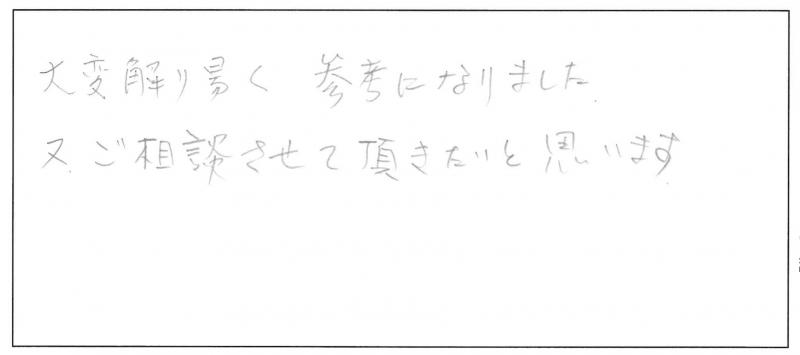 大変解り易く 参考になりました.
又.ご相談させて頂きたいと思います